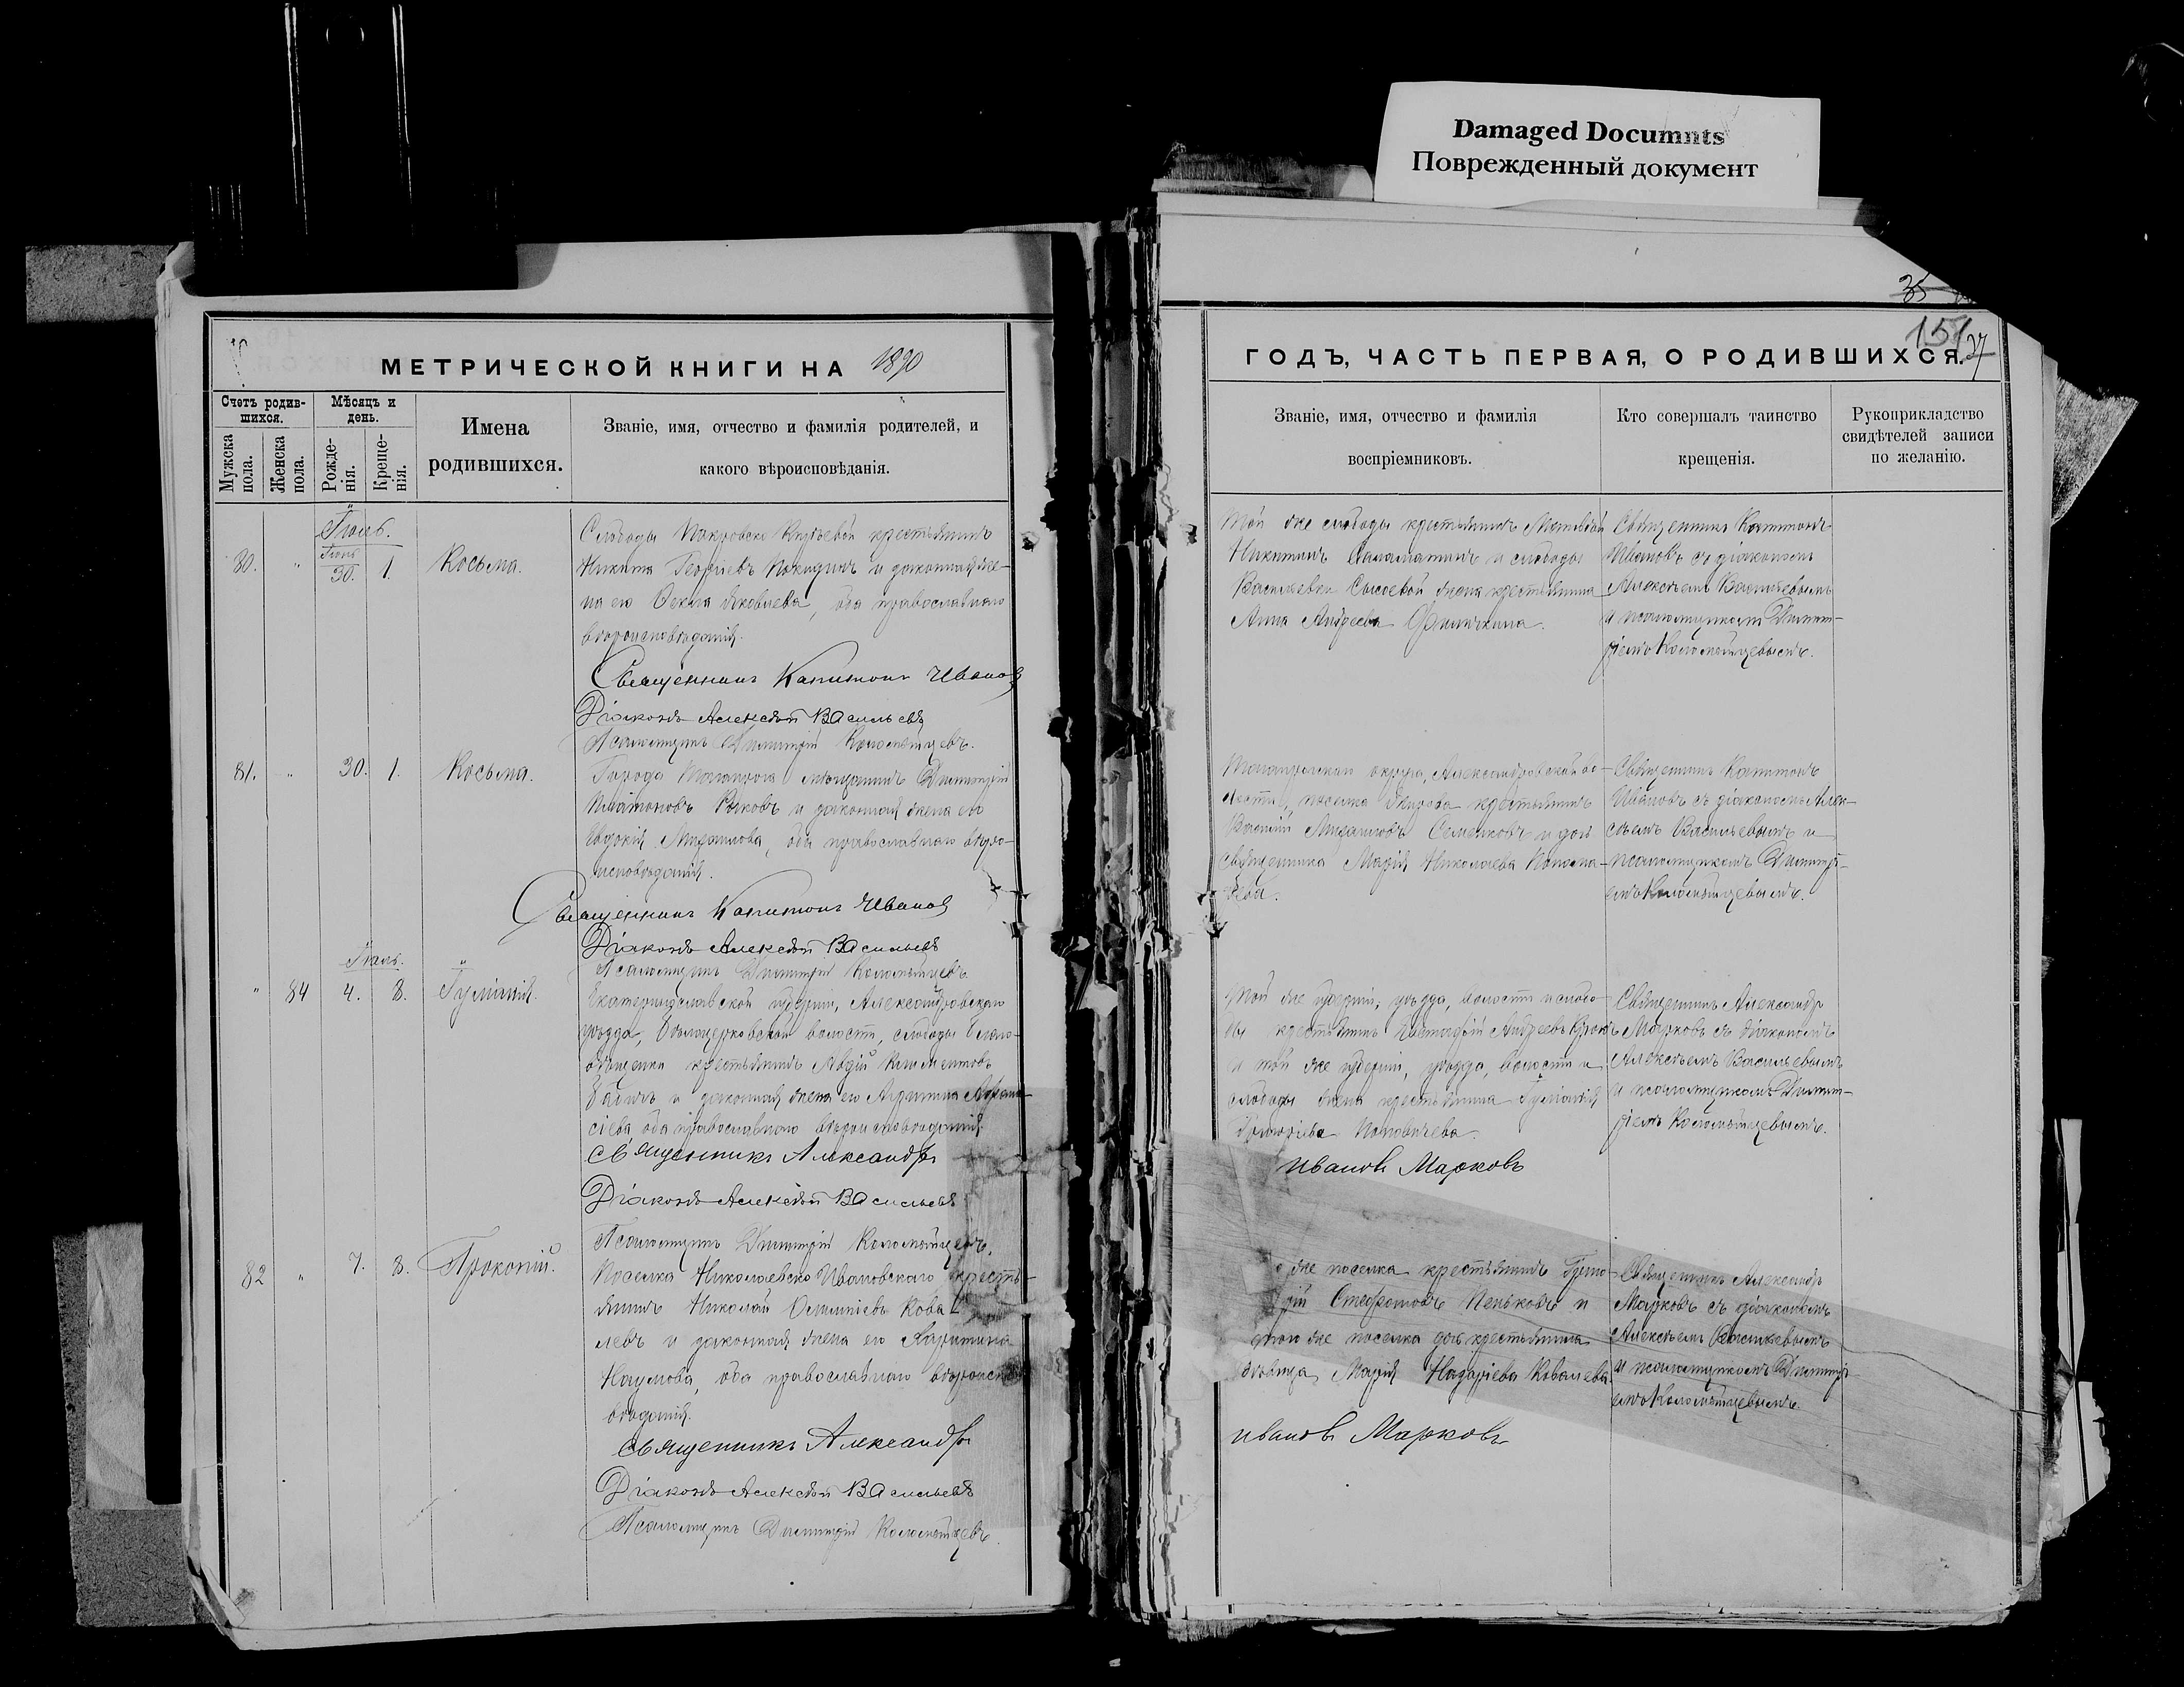 Damaged Documnts
Поврежденный документ
35
151
37
МЕТРИЧЕСКОЙ КНИГИ НА 1890
ГОДЪ, ЧАСТЬ ПЕРВАЯ, О РОДИВШИХСЯ.
Счетъ родив-
шихся.
Мужска
пола.
Женска
пола.
Мѣсяцъ и
день.
Рожде-
нія.
Креще-
нія.
Имена
родившихся.
Званіе, имя, отчество и фамилія родителей, и
какого вѣроисповѣданія.
Званіе, имя, отчество и фамилія
воспріемниковъ.
Кто совершалъ таинство
крещенія.
Рукоприкладство
свидѣтелей записи
по желанію.
Іюль.
Іюнь
80. " 30. 1. Косьма.
Слободы крестьянинъ
Никита Георгіевъ и законная же-
на его Ѳекла Яковлева, оба православнаго
вѣроисповѣданія.
Священникъ Капитонъ Ивановъ
Діаконъ Алексѣй Васильевъ
Псаломщикъ Димитрій Коломійцевъ.
Той же слободы крестьянинъ
Никитинъ и слободы
жена крестьянина
Анна Андреева
Священникъ Капитонъ
Ивановъ съ діакономъ
Алексѣемъ Васильевымъ
и псаломщикомъ Димит-
ріемъ Коломійцевымъ.
81. " 30. 1. Косьма.
Города Таганрога мѣщанинъ Димитрій
Платоновъ и законная жена его
Евдокія Михайлова, оба православнаго вѣро-
исповѣданія.
Священникъ Капитонъ Ивановъ
Діаконъ Алексѣй Васильевъ
Псаломщикъ Димитрій Коломійцевъ.
Таганрогскаго округа, Александровской во-
лости, поселка крестьянинъ
Василій Михайловъ Семенковъ и дочь
священника Марія Николаева
Священникъ Капитонъ
Ивановъ съ діакономъ Алек-
сѣемъ Васильевымъ и
псаломщикомъ Димитрі-
емъ Коломійцевымъ.
Іюль.
" 84 4. 8. Іуліанія.
Екатеринославской губерніи, Александровскаго
уѣзда, волости, слободы
крестьянинъ Авдій Климентовъ
и законная жена его Агрипина Афана-
сіева оба православнаго вѣроисповѣданія.
Священникъ Александръ
Ивановъ Марковъ
Діаконъ Алексѣй Васильевъ
Псаломщикъ Димитрій Коломійцевъ.
Той же губерніи, уѣзда, волости и слобо-
ды крестьянинъ Евстафій Андреевъ
и той же губерніи, уѣзда, волости и
слободы жена крестьянина Іуліанія
Григоріева
Священникъ Александръ
Марковъ съ діакономъ
Алексѣемъ Васильевымъ
и псаломщикомъ Димит-
ріемъ Коломійцевымъ.
82 " 7. 8. Прокопій.
Поселка Николаевско Ивановскаго кресть-
янинъ Николай Кова-
левъ и законная жена его Харитина
Наумова, оба православнаго вѣроиспо-
вѣданія.
Священникъ Александръ
Ивановъ Марковъ
Діаконъ Алексѣй Васильевъ
Псаломщикъ Димитрій Коломійцевъ.
же поселка крестьянинъ Григо-
рій Пеньковъ и
того же поселка дочь крестьянина
дѣвица Марія Назаріева Ковалева.
Священникъ Александръ
Марковъ съ діакономъ
Алексѣемъ Васильевымъ
и псаломщикомъ Димитрі-
емъ Коломійцевымъ.